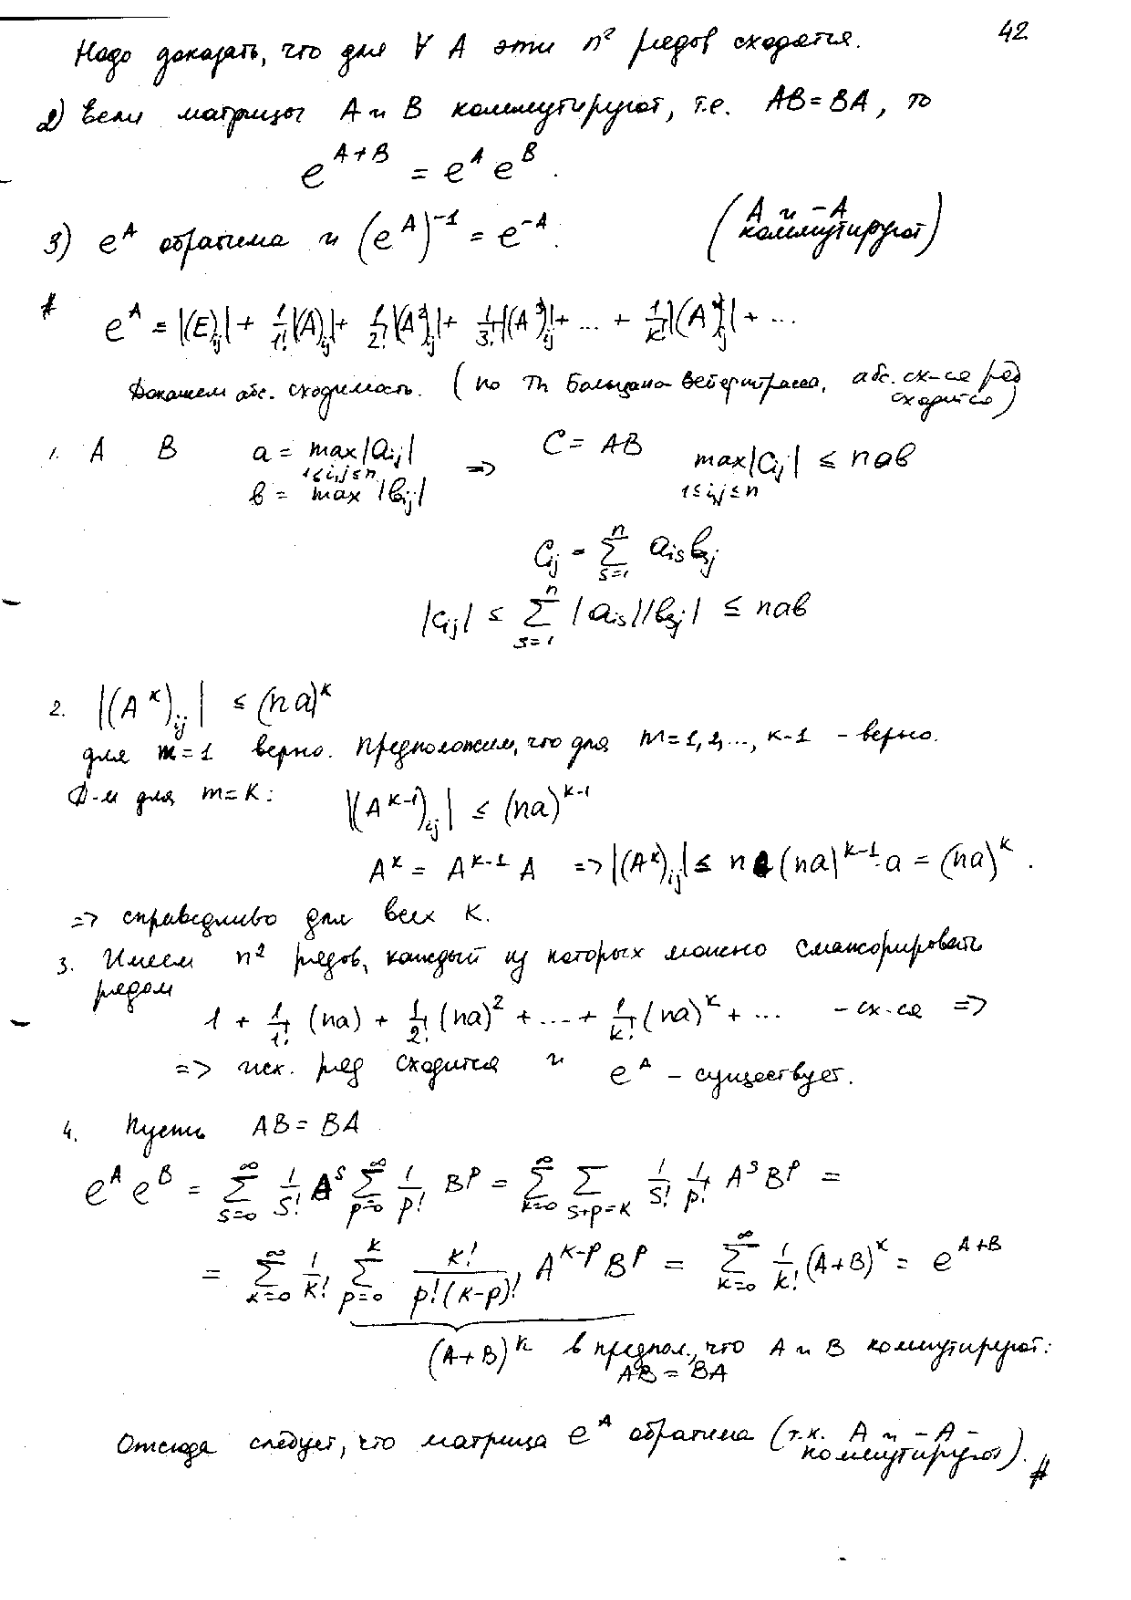 42
Надо доказать, что для ∀ A эти n² рядов сходятся.
2) Если матрицы A и B коммутируют, т.е. AB = BA, то
e^{A+B} = e^A e^B.
3) e^A обратима и (e^A)^{-1} = e^{-A}. (A и -A коммутируют)
# e^A = |(E)_{ij}| + 1/1! |(A)_{ij}| + 1/2! |(A²)_{ij}| + 1/3! |(A³)_{ij}| + ... + 1/k! |(A^k)_{ij}| + ...
Докажем абс. сходимость. (по Th Больцано-Вейерштрасса, абс. сх-ся ряд сходится)
1. A B a = max|a_{ij}| 1≤i,j≤n => C = AB max|c_{ij}| ≤ nав 1≤i,j≤n
в = max |в_{ij}|
c_{ij} = ∑_{s=1}^{n} a_{is} в_{sj}
|c_{ij}| ≤ ∑_{s=1}^{n} |a_{is}||в_{sj}| ≤ nав
2. |(A^k)_{ij}| ≤ (na)^k
для m=1 верно. Предположим, что для m=1,2,..., k-1 - верно.
Д-м для m=k: |(A^{k-1})_{ij}| ≤ (na)^{k-1}
A^k = A^{k-1} A => |(A^k)_{ij}| ≤ n (na)^{k-1}·a = (na)^k.
=> справедливо для всех k.
3. Имеем n² рядов, каждый из которых можно смажорировать
рядом
1 + 1/1! (na) + 1/2! (na)² + ... + 1/k! (na)^k + ... - сх-ся =>
=> иск. ряд сходится и e^A - существует.
4. Пусть AB = BA
e^A e^B = ∑_{s=0}^{∞} 1/s! A^s ∑_{p=0}^{∞} 1/p! B^p = ∑_{k=0}^{∞} ∑_{s+p=k} 1/s! 1/p! A^s B^p =
= ∑_{k=0}^{∞} 1/k! ∑_{p=0}^{k} k!/(p!(k-p)!) A^{k-p} B^p = ∑_{k=0}^{∞} 1/k! (A+B)^k = e^{A+B}
(A+B)^k в предпол., что A и B коммутируют:
AB = BA
Отсюда следует, что матрица e^A обратима (т.к. A и -A -
коммутируют). #